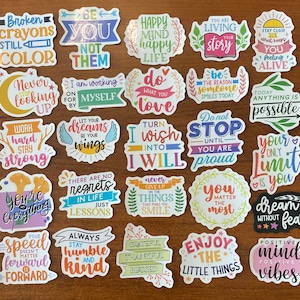 Broken
crayons
STILL
COLOR
BE
YOU
NOT
THEM
HAPPY
MIND
HAPPY
LIFE
YOU ARE
LIVING
YOUR
story
STAY CLOSE
YOU
FEELING
ALIVE
Never
looking
UP
I am working
ON
FOR
BY
MYSELF
do
what
YOU
Love
be THE
reason
SOMEONE
SMILES TODAY
TODAY
ANYTHING IS
possible
WORK
hard
STAY
strong
LET YOUR
dreams
BE YOUR
wings
TURN
wish
INTO
I WILL
Do not
STOP
UNTIL
YOU ARE
proud
your
only
limit
YOU
YOU'RE
everything
THERE ARE NO
regrets
IN LIFE
JUST
LESSONS
never
GIVE UP
THINGS
THAT MAKE YOU
SMILE
YOU
MATTER
THE
most
dream
WITHOUT
fear
YOUR
speed
DOESN'T
matter
forward is
FORWARD
ALWAYS
stay
humble
AND
kind
ENJOY
THE
LITTLE THINGS
POSITIVE
mind
vibes